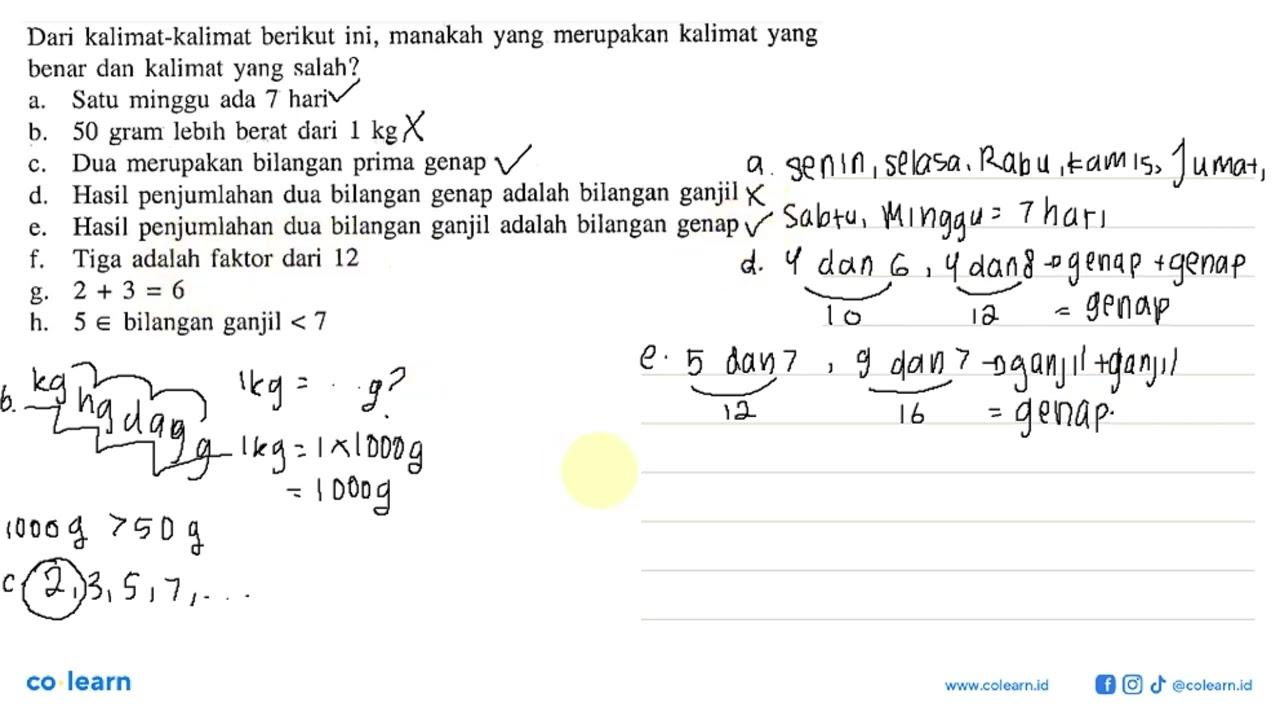 Dari kalimat-kalimat berikut ini, manakah yang merupakan kalimat yang
benar dan kalimat yang salah?
a. Satu minggu ada 7 hari ✓
b. 50 gram lebih berat dari 1 kg X
c. Dua merupakan bilangan prima genap ✓
d. Hasil penjumlahan dua bilangan genap adalah bilangan ganjil X
e. Hasil penjumlahan dua bilangan ganjil adalah bilangan genap ✓
f. Tiga adalah faktor dari 12
g. 2 + 3 = 6
h. 5 ∈ bilangan ganjil < 7
a. Senin, Selasa, Rabu, kamis, Jumat,
Sabtu, Minggu = 7 hari
d. 4 dan 6, 4 dan 8 → genap + genap
10 12 = genap
e. 5 dan 7, 9 dan 7 → ganjil + ganjil
12 16 = genap.
b. kg hg dag g
1kg = ... g?
1kg = 1 x 1000g
= 1000g
1000g > 50g
c 2, 3, 5, 7, ...
co learn
www.colearn.id
@colearn.id